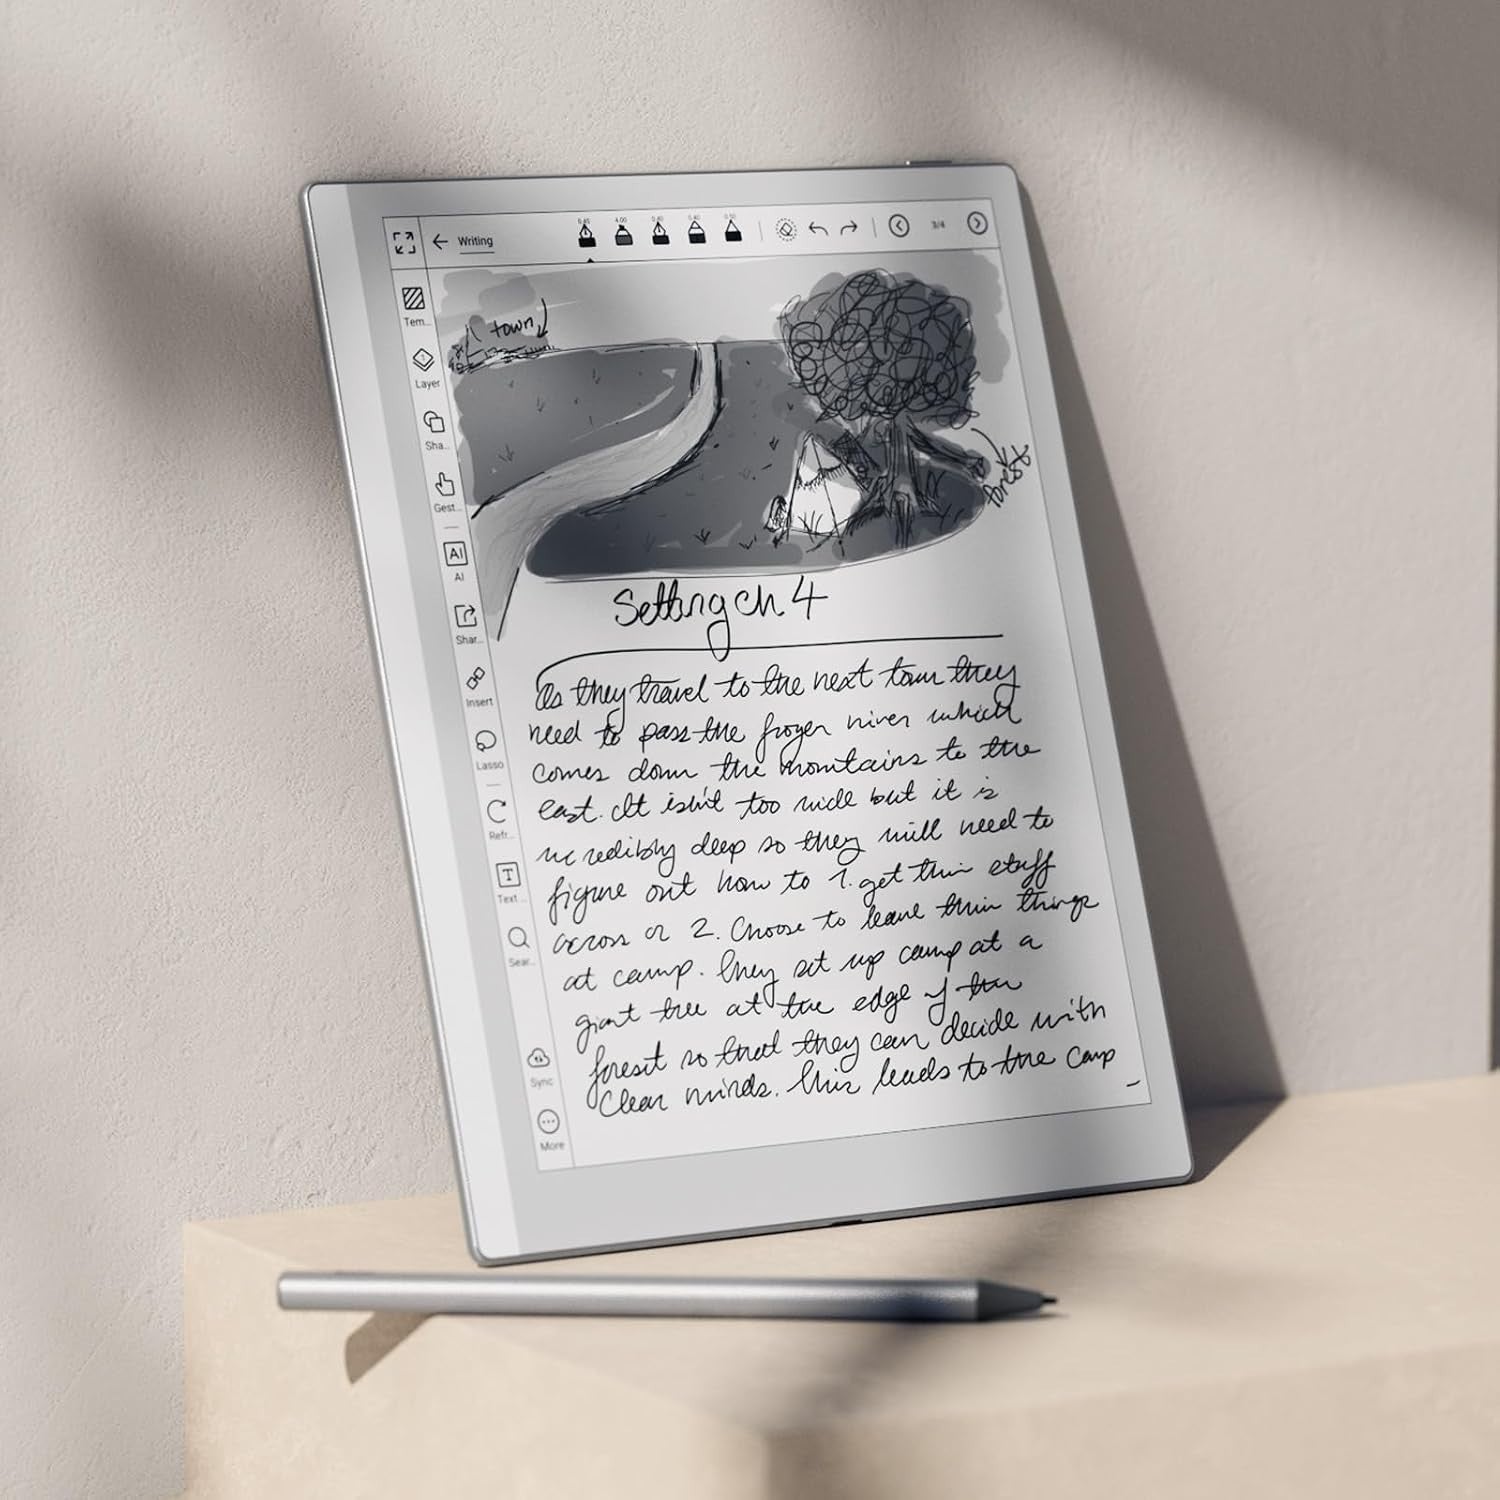 Writing
0.45 4.00 0.40 0.40 0.50
3/4
Tem...
Layer
Sha...
Gest...
AI
AI
Shar...
Insert
Lasso
Refr...
T
Text ...
Sear...
Sync
More
town
forest
Setting ch 4
As they travel to the next town they
need to pass the frozen river which
comes down the mountains to the
east. It isn't too wide but it is
incredibly deep so they will need to
figure out how to 1. get their stuff
across or 2. Choose to leave their things
at camp. They set up camp at a
giant tree at the edge of the
forest so that they can decide with
clear minds. This leads to the camp